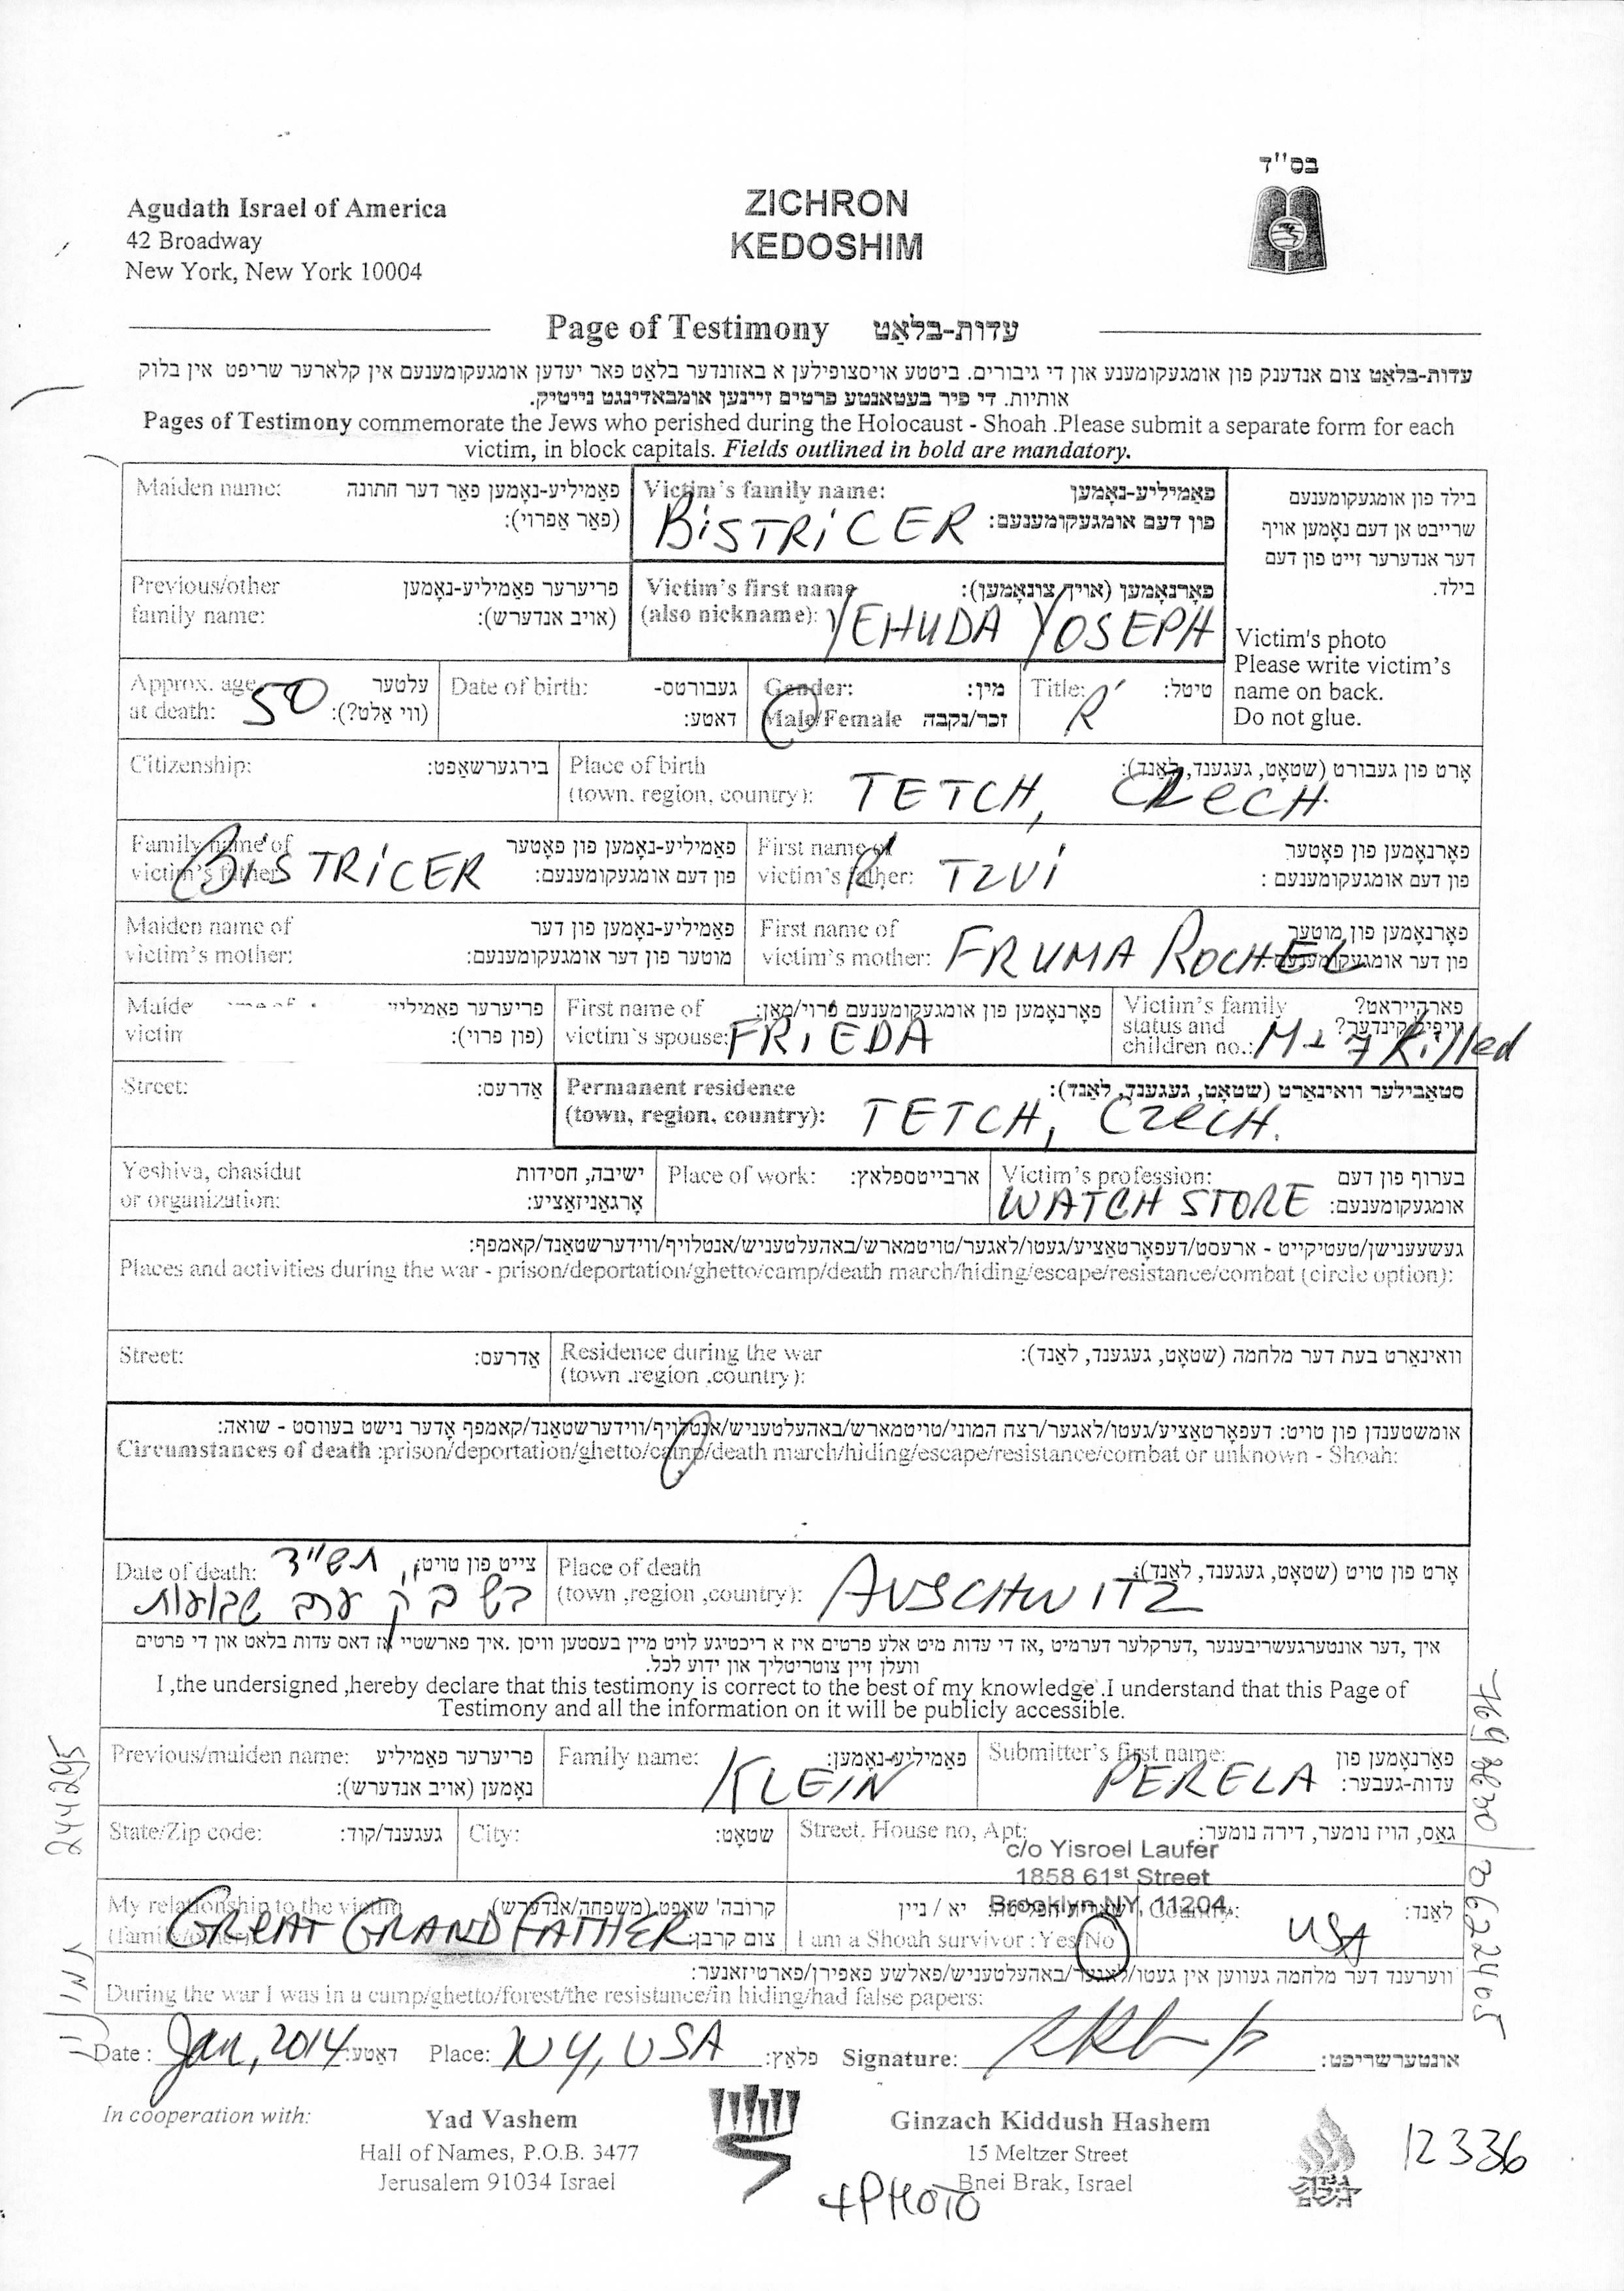 בס"ד
Agudath Israel of America
42 Broadway
New York, New York 10004
ZICHRON
KEDOSHIM
Page of Testimony עדות-בלאַט
עדות-בלאַט צום אנדענק פון אומגעקומענע און די גיבורים. ביטטע אויסצופילען א באזונדער בלאַט פאר יעדען אומגעקומענעם אין קלארער שריפט אין בלוק
אותיות. די פיר בעטאנטע פרטים זיינען אומבאדינגט נייטיק.
Pages of Testimony commemorate the Jews who perished during the Holocaust - Shoah .Please submit a separate form for each
victim, in block capitals. Fields outlined in bold are mandatory.
Maiden name: פאַמיליע-נאָמען פאַר דער חתונה
(פאַר אַפרוי):
Victim's family name: פאַמיליע-נאָמען
פון דעם אומגעקומענעם:
BISTRICER
בילד פון אומגעקומענעם
שרייבט אן דעם נאָמען אויף
דער אנדערער זייט פון דעם
בילד.
Victim's photo
Please write victim's
name on back.
Do not glue.
Previous/other פריערער פאַמיליע-נאָמען
family name: (אויב אנדערש):
Victim's first name פאָרנאָמען (אויך צונאָמען):
(also nickname): YEHUDA YOSEPH
Approx. age עלטער
at death: 50 (ווי אַלט?):
Date of birth: געבורטס-
דאטע:
Gender: מין:
Male/Female זכר/נקבה
Title: טיטל:
R'
Citizenship: בירגערשאַפט:
Place of birth אָרט פון געבורט (שטאָט, געגענד, לאַנד):
(town. region, country): TETCH, CZECH.
Family name of פאַמיליע-נאָמען פון פאָטער
victim's father: פון דעם אומגעקומענעם:
BISTRICER
First name of פאָרנאָמען פון פאָטער
victim's father: פון דעם אומגעקומענעם :
R' TZVI
Maiden name of פאַמיליע-נאָמען פון דער
victim's mother: מוטער פון דער אומגעקומענעם:
First name of פאָרנאָמען פון מוטער
victim's mother: פון דער אומגעקומענעם:
FRUMA ROCHEL
Maide פריערער פאַמיליי
victin (פון פרוי):
First name of פאָרנאָמען פון אומגעקומענעם פרוי/מאַן:
victim's spouse: FRIEDA
Victim's family פארהייראט?
status and וויפיל קינדער?
children no.: M - 7 Killed
Street: אַדרעס:
Permanent residence סטאַבילער וואוינאָרט (שטאָט, געגענד, לאַנד):
(town, region, country): TETCH, CZECH.
Yeshiva, chasidut ישיבה, חסידות
or organization: אָרגאַניזאַציע:
Place of work: ארבייטספלאץ:
Victim's profession: בערוף פון דעם
אומגעקומענעם:
WATCH STORE
געשעענישן/טעטיקייט - ארעסט/דעפאָרטאַציע/געטו/לאגער/טויטמארש/באהעלטעניש/אנטלויף/ווידערשטאַנד/קאמפף:
Places and activities during the war - prison/deportation/ghetto/camp/death march/hiding/escape/resistance/combat (circle option):
Street: אַדרעס:
Residence during the war וואוינאָרט בעת דער מלחמה (שטאָט, געגענד, לאַנד):
(town .region .country):
אומשטענדן פון טויט: דעפאָרטאַציע/געטו/לאגער/רצח המוני/טויטמארש/באהעלטעניש/אנטלויף/ווידערשטאַנד/קאמפף אָדער נישט בעוווסט - שואה:
Circumstances of death :prison/deportation/ghetto/camp/death march/hiding/escape/resistance/combat or unknown - Shoah:
Date of death: צייט פון טויט:
תש"ד
ערב שבועות
Place of death אָרט פון טויט (שטאָט, געגענד, לאַנד):
(town ,region ,country): AUSCHWITZ
איך ,דער אונטערגעשריבענער ,דערקלער דערמיט ,אז די עדות מיט אלע פרטים איז א ריכטיגע לויט מיין בעסטען וויסן .איך פארשטיי אז דאס עדות בלאט און די פרטים
וועלן זיין צוטריטליך און ידוע לכל.
I ,the undersigned ,hereby declare that this testimony is correct to the best of my knowledge .I understand that this Page of
Testimony and all the information on it will be publicly accessible.
Previous/maiden name: פריערער פאַמיליע
נאָמען (אויב אנדערש):
Family name: פאַמיליע-נאָמען:
KLEIN
Submitter's first name: פאָרנאָמען פון
עדות-געבער:
PERELA
State/Zip code: געגענד/קוד:
City: שטאָט:
Street, House no, Apt: גאַס, הויז נומער, דירה נומער:
c/o Yisroel Laufer
1858 61st Street
Brooklyn NY, 11204.
My relationship to the victim קרובה' שאַפט (משפחה/אנדערש)
צום קרבן:
GREAT GRANDFATHER
יא / ניין
I am a Shoah survivor : Yes/No
Country: לאַנד:
USA
ווערענד דער מלחמה געווען אין געטו/לאגער/באהעלטעניש/פאלשע פאפירן/פארטיזאנער:
During the war I was in a camp/ghetto/forest/the resistance/in hiding/had false papers:
Date : Jan, 2014 דאטע: Place: NY, USA פלאַץ: Signature: אונטערשריפט:
In cooperation with:
Yad Vashem
Hall of Names, P.O.B. 3477
Jerusalem 91034 Israel
Ginzach Kiddush Hashem
15 Meltzer Street
Bnei Brak, Israel
+PHOTO
12336
244295